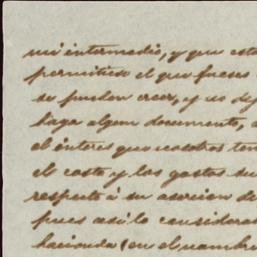 mi intermedio, y que est
permitiese el que fuese
se puedan creer, y es de
haga algun documento, a
el interes que vosotros ten
el costo y los gastos su
respecto á su asercion de
pues asi lo considera
hacienda (en el nombre